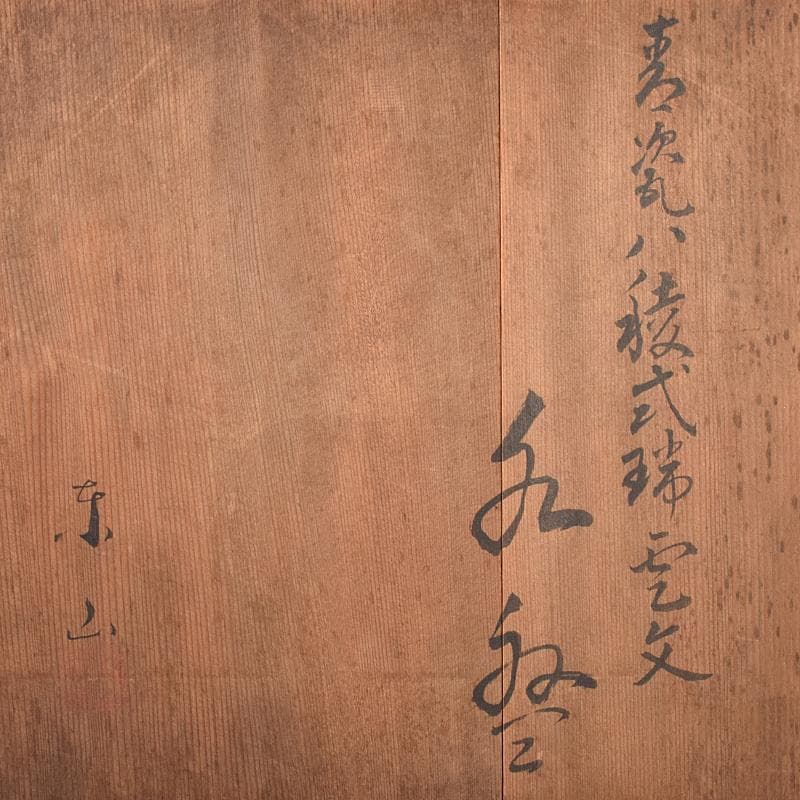 青瓷八稜式瑞雲文
水盤
東山